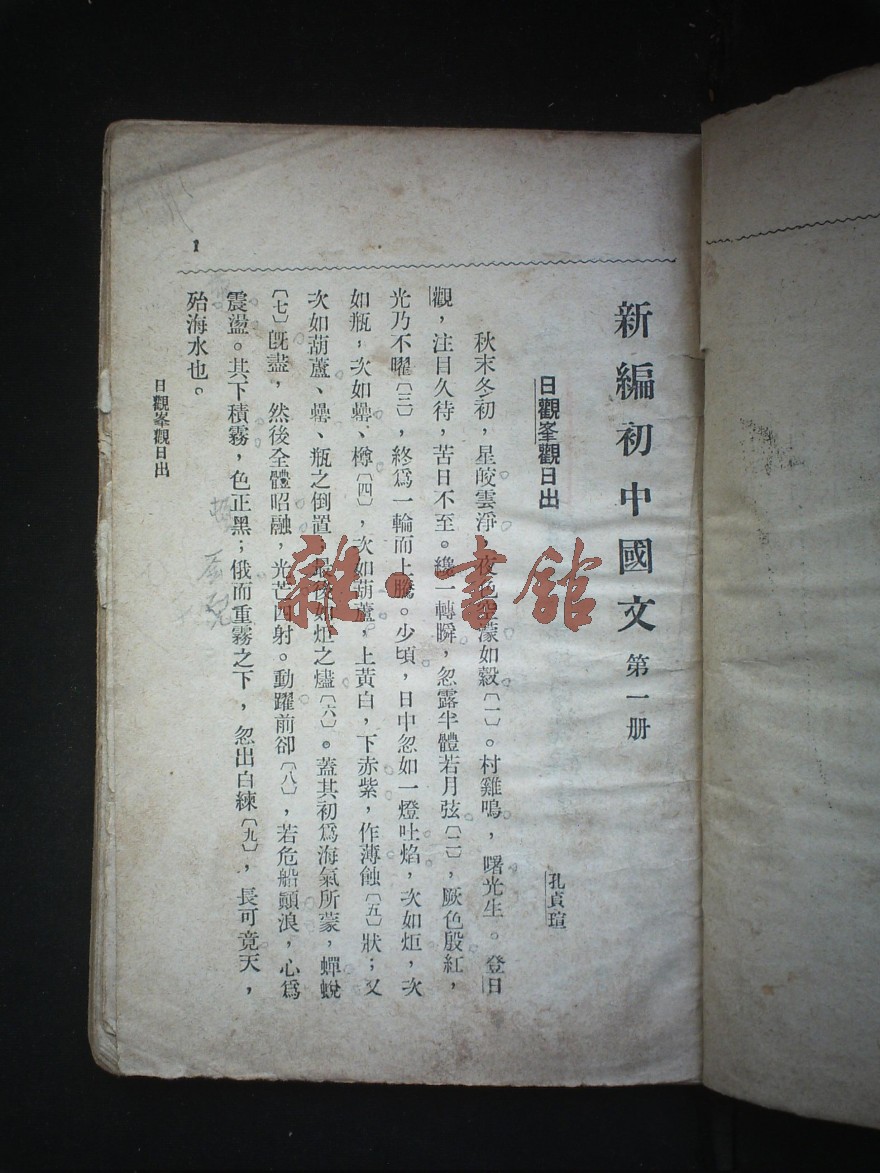 新編初中國文 第一册
日觀峯觀日出
孔貞瑄
秋末冬初，星皎雲淨，夜色空濛如縠〔一〕。村雞鳴，曙光生。登日
觀，注目久待，苦日不至。纔一轉瞬，忽露半體若月弦〔二〕，厥色殷紅，
光乃不曜〔三〕，終爲一輪而上騰。少頃，日中忽如一燈吐焰，次如炬，次
如瓶，次如罍、樽〔四〕，次如葫蘆，上黃白，下赤紫，作薄蝕〔五〕狀；又
次如葫蘆、罍、瓶之倒置，最後如炬之燼〔六〕。蓋其初爲海氣所蒙，蟬蛻
〔七〕旣盡，然後全體昭融，光芒四射。動躍前卻〔八〕，若危船顚浪，心爲
震盪。其下積霧，色正黑；俄而重霧之下，忽出白練〔九〕，長可竟天，
殆海水也。
日觀峯觀日出
1
雜·書館